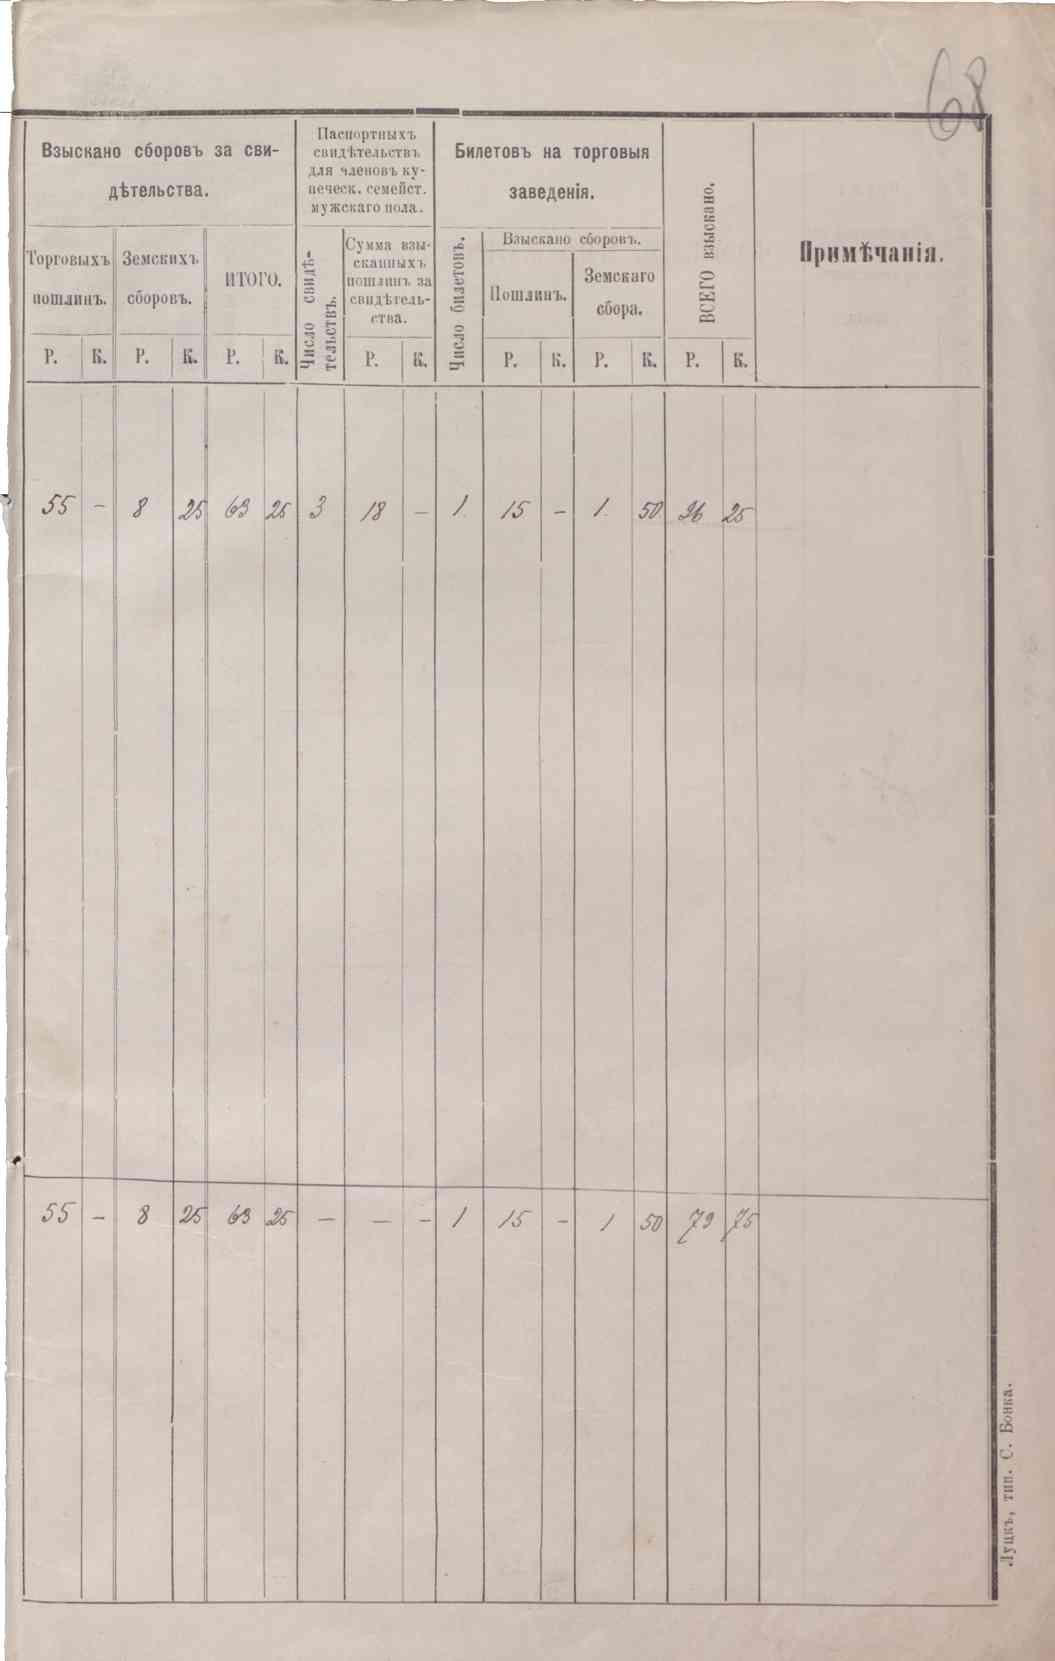 68
Взыскано сборовъ за сви-
дѣтельства.
Торговыхъ
пошлинъ.
Земскихъ
сборовъ.
ИТОГО.
Паспортныхъ
свидѣтельствъ
для членовъ ку-
печеск. семейст.
мужскаго пола.
Число свидѣ-
тельствъ.
Сумма взы-
сканныхъ
пошлинъ за
свидѣтель-
ства.
Билетовъ на торговыя
заведенія.
Число билетовъ.
Взыскано сборовъ.
Пошлинъ.
Земскаго
сбора.
ВСЕГО взыскано.
Примѣчанія.
Р. К. Р. К. Р. К. Р. К. Р. К. Р. К. Р. К.
55 – 8 25 63 25 3 18 – 1 15 – 1 50 96 25
55 – 8 25 63 25 – – – 1 15 – 1 50 79 75
Луцкъ, тип. С. Бонка.